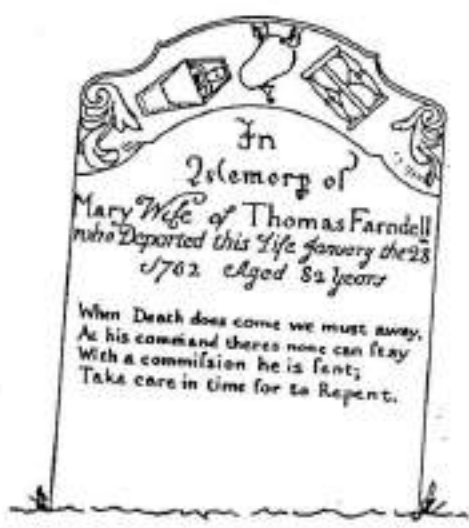 In
Memory of
Mary Wife of Thomas Farndell
who Departed this Life January the 28
1762 Aged 82 years
When Death does come we must away,
At his command theres none can ſtay
With a commiſsion he is ſent;
Take care in time for to Repent.